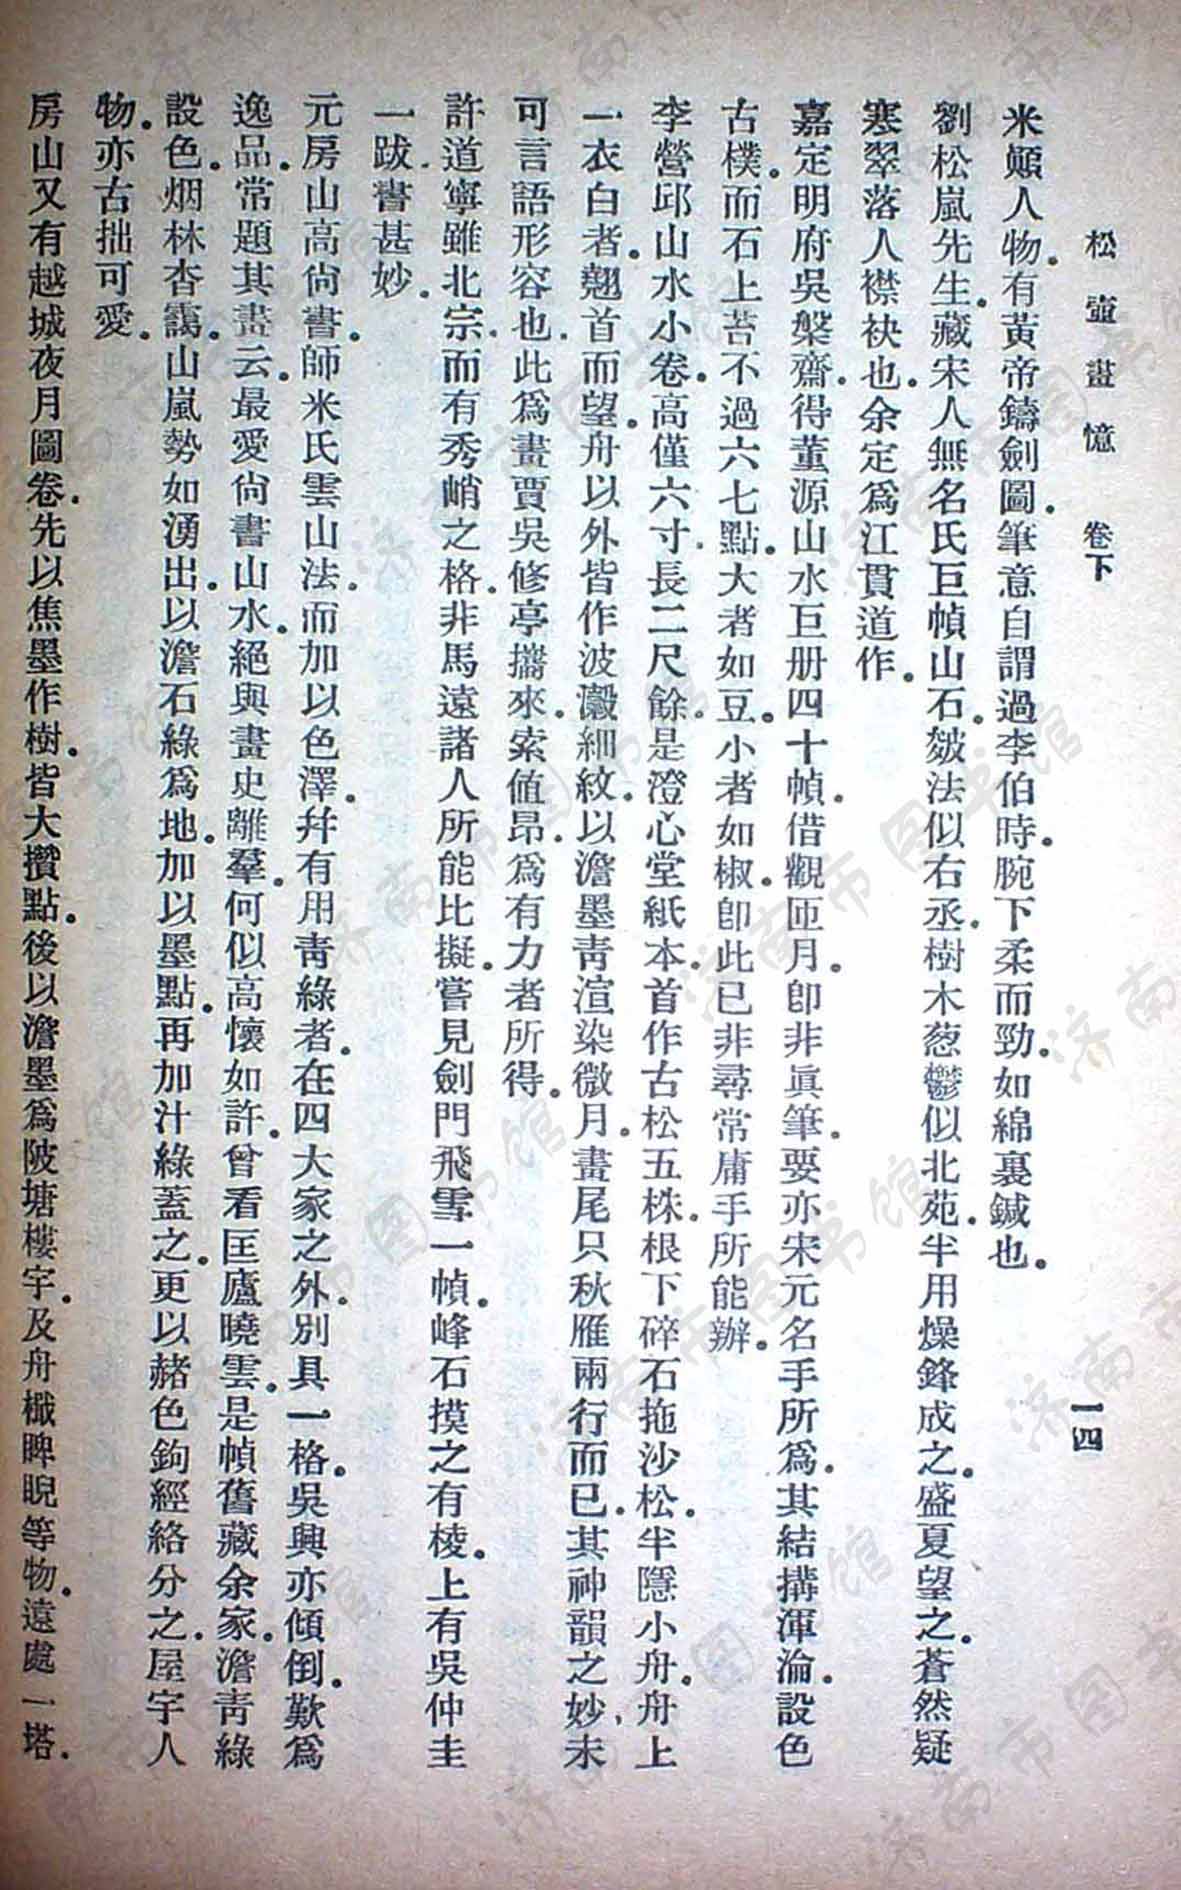 松壺畫憶　卷下　一四
米顚人物。有黃帝鑄劍圖。筆意自謂過李伯時。腕下柔而勁。如綿裏鍼也。
劉松嵐先生。藏宋人無名氏巨幀山石。皴法似右丞。樹木葱鬱似北苑。半用燥鋒成之。盛夏望之。蒼然疑
寒翠落人襟袂也。余定爲江貫道作。
嘉定明府吳槃齋。得董源山水巨册四十幀。借觀匝月。卽非眞筆。要亦宋元名手所爲。其結搆渾淪。設色
古樸。而石上苔不過六七點。大者如豆。小者如椒。卽此已非尋常庸手所能辦。
李營邱山水小卷。高僅六寸。長二尺餘。是澄心堂紙本。首作古松五株。根下碎石拖沙。松半隱小舟。舟上
一衣白者。翹首而望。舟以外皆作波瀫細紋。以澹墨靑渲染微月。畫尾只秋雁兩行而已。其神韻之妙。未
可言語形容也。此爲畫賈吳修亭攜來。索値昂。爲有力者所得。
許道寧雖北宗。而有秀峭之格。非馬遠諸人所能比擬。嘗見劍門飛雪一幀。峰石摸之有棱。上有吳仲圭
一跋。書甚妙。
元房山高尙書。師米氏雲山法。而加以色澤。幷有用靑綠者。在四大家之外。別具一格。吳興亦傾倒。歎爲
逸品。常題其畫云。最愛尙書山水。絕與畫史離羣。何似高懷如許。曾看匡廬曉雲。是幀舊藏余家。澹靑綠
設色。烟林杳靄。山嵐勢如湧出。以澹石綠爲地。加以墨點。再加汁綠蓋之。更以赭色鉤經絡分之。屋宇人
物。亦古拙可愛。
房山又有越城夜月圖卷。先以焦墨作樹。皆大攢點。後以澹墨爲陂塘樓宇。及舟檝睥睨等物。遠處一塔。